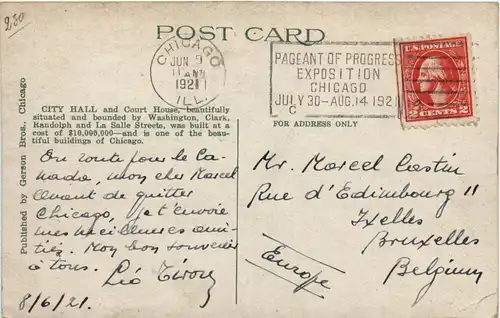 2,50
POST CARD
CHICAGO
JUN 9
11 AM
1921
ILL.
PAGEANT OF PROGRESS
EXPOSITION
CHICAGO
JULY 30-AUG. 14 1921
C
U.S. POSTAGE
2 CENTS 2
CITY HALL and Court House, beautifully
situated and bounded by Washington, Clark,
Randolph and La Salle Streets, was built at a
cost of $10,000,000—and is one of the beau-
tiful buildings of Chicago.
FOR ADDRESS ONLY
Published by Gerson Bros., Chicago
En route pour le Ca-
nada, mon cher Marcel
Avant de quitter
Chicago, je t'envoie
mes meilleures ami-
tiés. Mon bon souvenir
à tous. Léo
8/6/21.
Mr. Marcel Castin
Rue d'Edimbourg 11
Ixelles
Bruxelles
Belgium
Europe